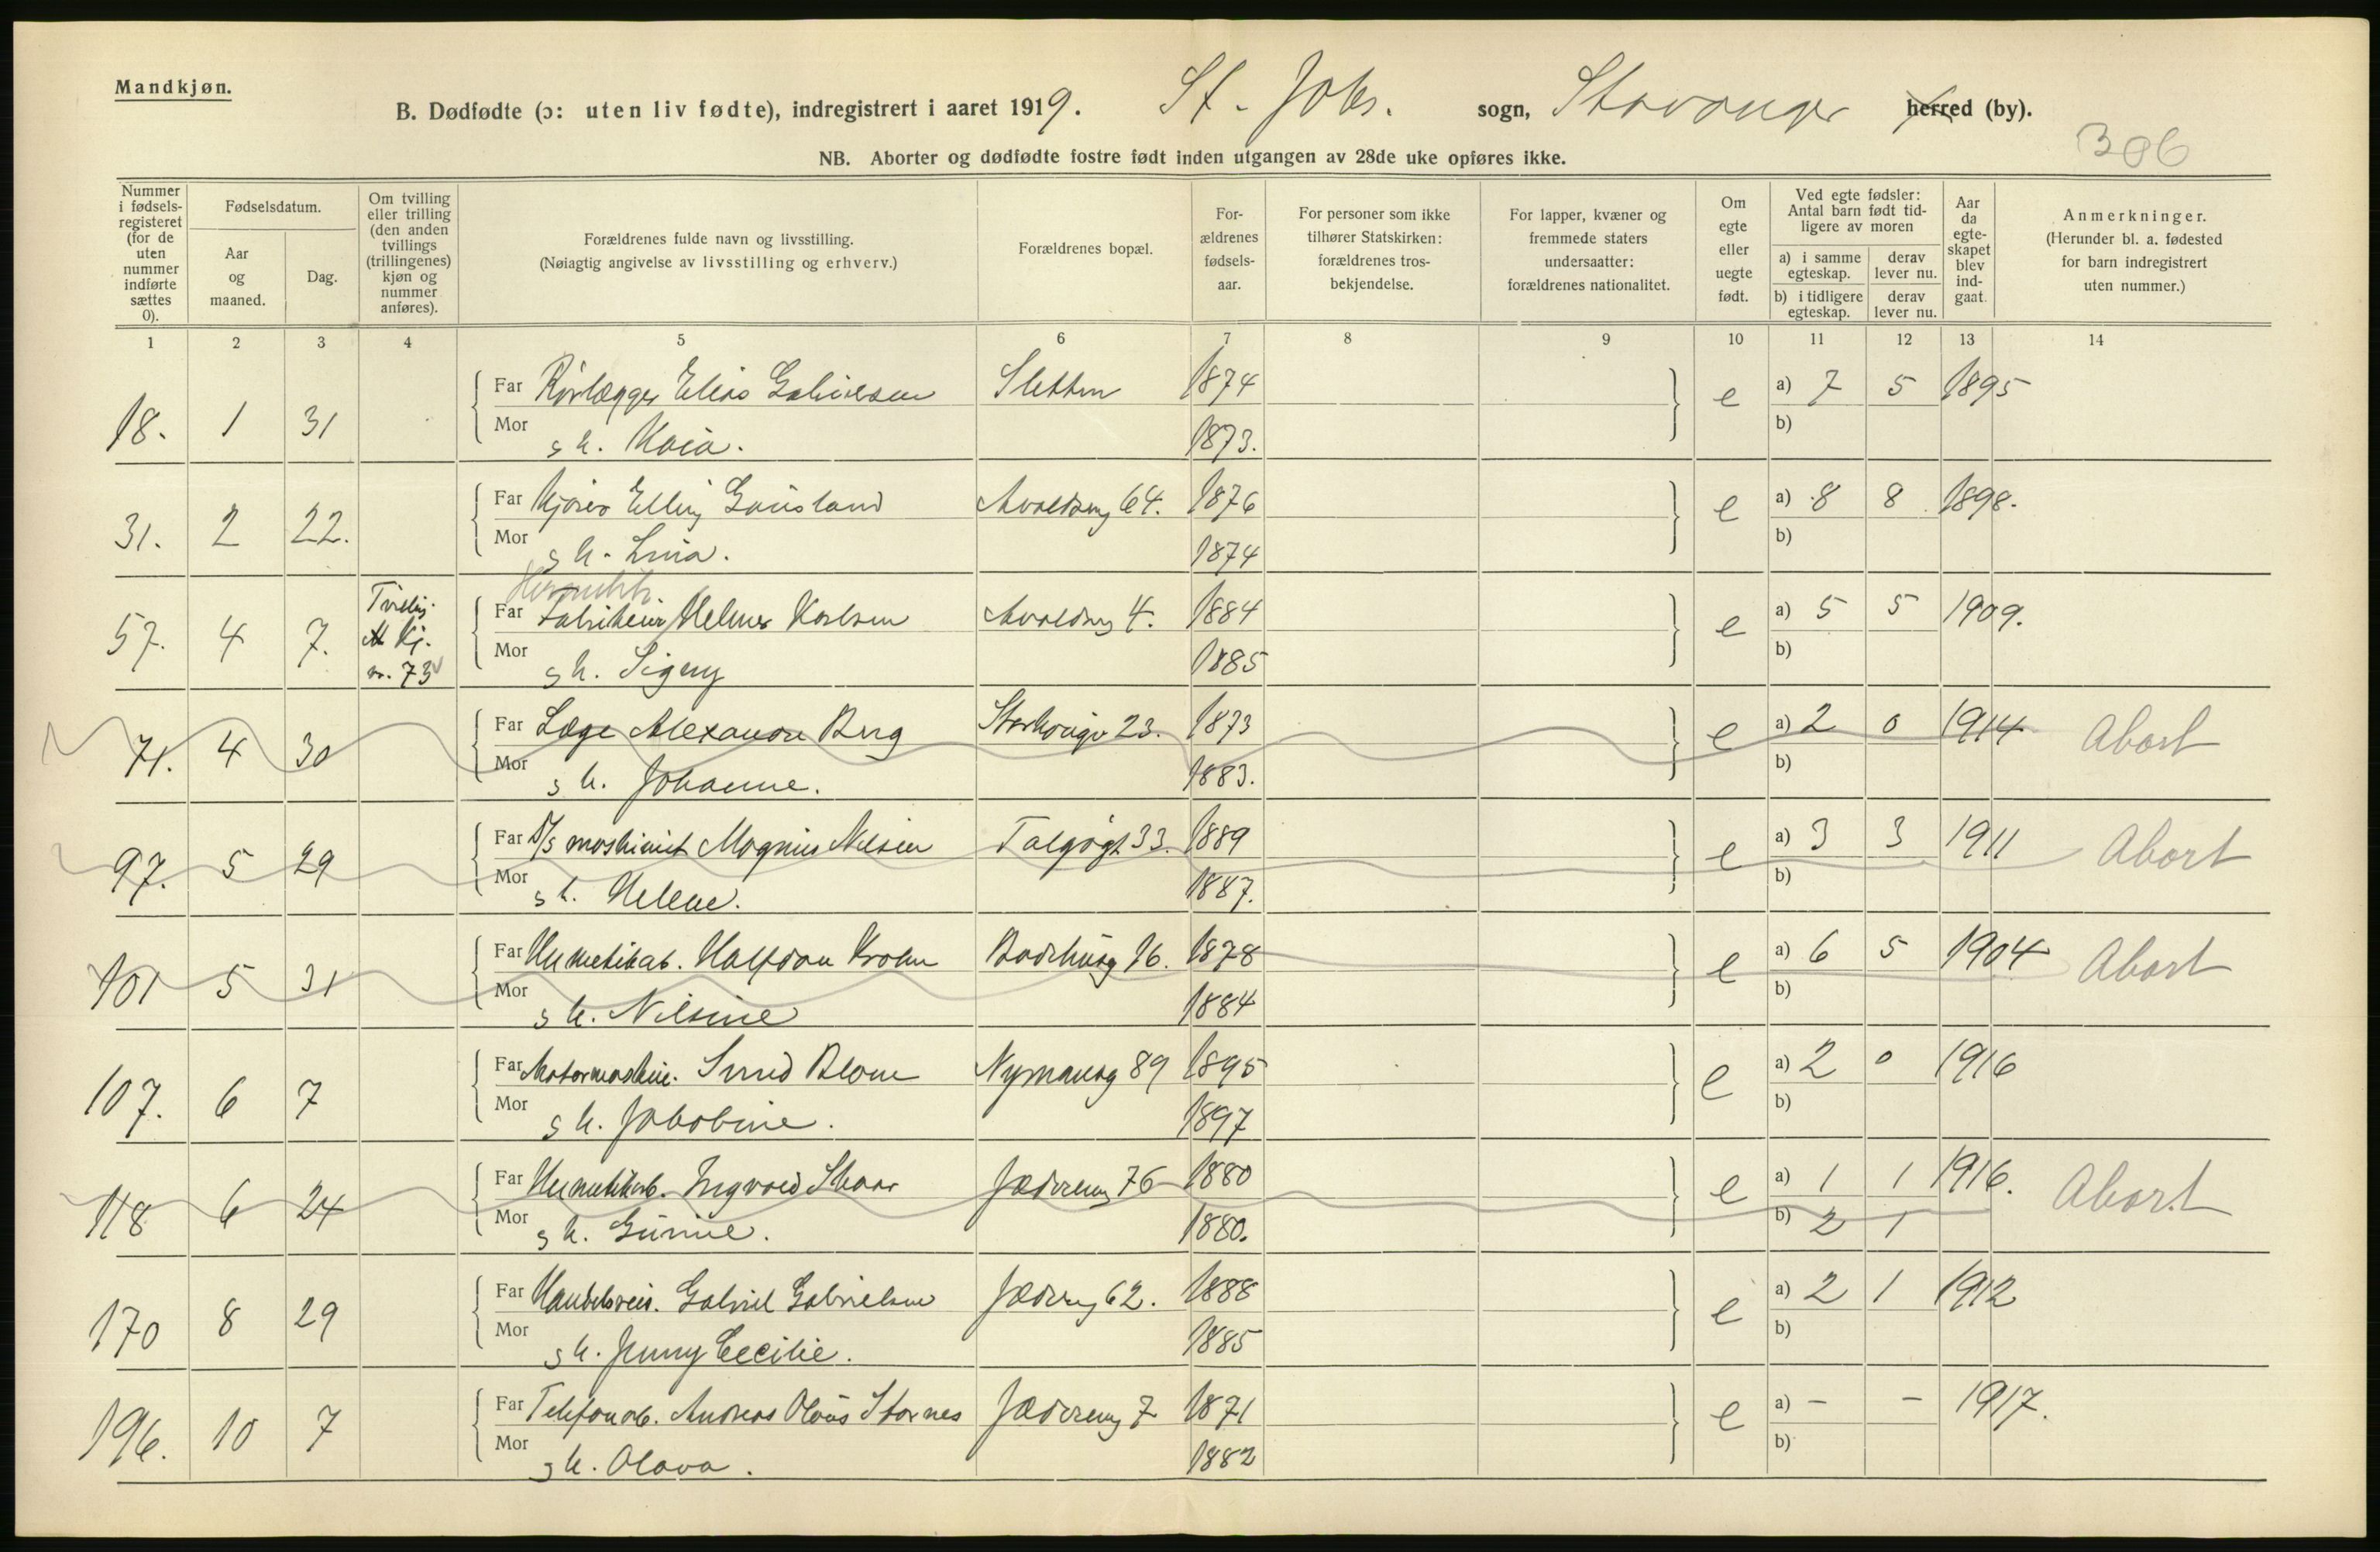 Mandkjøn.
B. Dødfødte (ɔ: uten liv fødte), indregistrert i aaret 1919. St. Johs. sogn, Stavanger herred (by).
306
NB. Aborter og dødfødte fostre født inden utgangen av 28de uke opføres ikke.
Nummer i fødselsregisteret (for de uten nummer indførte sættes 0).
Fødselsdatum.
Aar og maaned.
Dag.
Om tvilling eller trilling (den anden tvillings (trillingenes) kjøn og nummer anføres).
Forældrenes fulde navn og livsstilling.
(Nøiagtig angivelse av livsstilling og erhverv.)
Forældrenes bopæl.
Forældrenes fødselsaar.
For personer som ikke tilhører Statskirken: forældrenes trosbekjendelse.
For lapper, kvæner og fremmede staters undersaatter: forældrenes nationalitet.
Om egte eller uegte født.
Ved egte fødsler: Antal barn født tidligere av moren
a) i samme egteskap. derav lever nu.
b) i tidligere egteskap. derav lever nu.
Aar da egteskapet blev indgaat.
Anmerkninger.
(Herunder bl. a. fødested for barn indregistrert uten nummer.)
1 2 3 4 5 6 7 8 9 10 11 12 13 14
18. 1 31 Far Rørlægger Elias Gabrielsen Sletten 1874 e a) 7 5 1895
Mor s h. Kaia. 1873. b)
31. 2 22. Far Kjører Elling Gausland Avaldsng 64. 1876 e a) 8 8 1898.
Mor s h. Lina. 1874 b)
Hermetikk.
57. 4 7. Tvilling. M Kj. nr. 73 Far Fabrikeier Helmer Karlsen Avaldsng 4. 1884 e a) 5 5 1909.
Mor s h. Signy 1885 b)
71. 4 30 Far Læge Alexander Berg Storhougv 23. 1873 e a) 2 0 1914 Abort
Mor s h. Johanne. 1883. b)
97. 5 29 Far D/s maskinist Magnus Nilsen Talgøgt 33. 1889 e a) 3 3 1911 Abort
Mor s h. Helene. 1887. b)
101 5 31 Far Hermetikarb. Halfdan Krohn Badehusg 16. 1878 e a) 6 5 1904 Abort
Mor s h. Nilsine 1884 b)
107. 6 7 Far Motormaskin. Svend Blom Nymansg 89 1895 e a) 2 0 1916
Mor s h. Jakobine. 1897 b)
118 6 24 Far Hermetikarb. Ingvald Skaar Jæderveng 76 1880 e a) 1 1 1916. Abort
Mor s h. Gurine. 1880. b) 2 1
170 8 29 Far Handelsreis. Gabriel Gabrielsen Jæderveng 62. 1888 e a) 2 1 1912
Mor s h. Jenny Cecilie. 1885 b)
196. 10 7 Far Telefonarb. Andreas Olaus Stornes Jæderveng 7 1871 e a) - - 1917.
Mor s h. Olava. 1882 b)